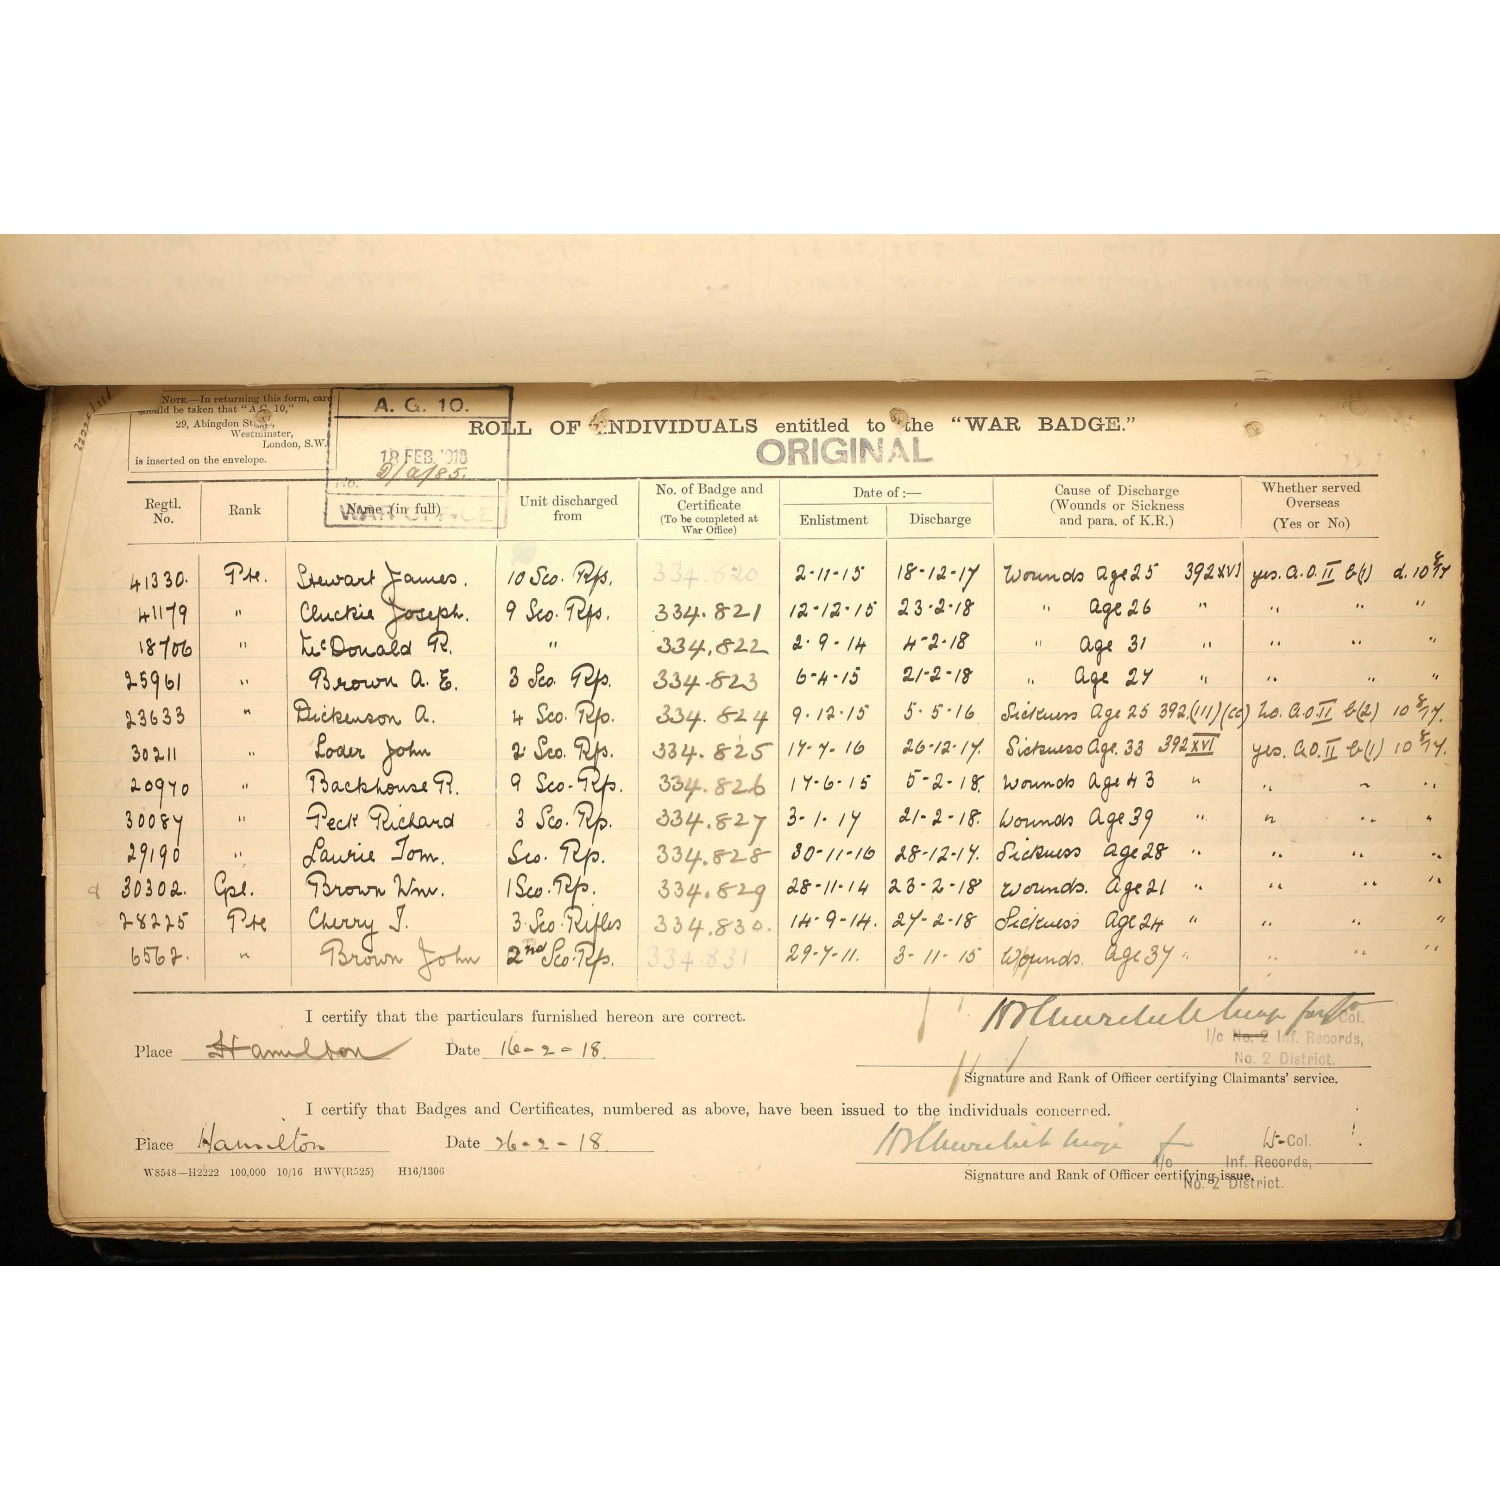 NOTE.—In returning this form, care
should be taken that "A.G. 10,"
29, Abingdon
Westminster,
London, S.W.
is inserted on the envelope.
A. G. 10.
18 FEB. 1918
No. 2/a/85.
WAR OFFICE
ROLL OF INDIVIDUALS entitled to the "WAR BADGE."
ORIGINAL
Regtl. No. Rank Name (in full) Unit discharged from No. of Badge and Certificate (To be completed at War Office) Date of :— Enlistment Discharge Cause of Discharge (Wounds or Sickness and para. of K.R.) Whether served Overseas (Yes or No)
41330. Pte. Stewart James. 10 Sco. Rfs. 334.820 2-11-15 18-12-17 Wounds Age 25 392 XVI yes. A.O. II b(1) d. 10 8/17
41179 " Cluckie Joseph. 9 Sco. Rfs. 334.821 12-12-15 23-2-18 " Age 26 " " " "
18706 " McDonald R. " 334.822 2-9-14 4-2-18 " Age 31 " " " "
25961 " Brown A. E. 3 Sco. Rfs. 334.823 6-4-15 21-2-18 " Age 27 " " " "
23633 " Dickenson A. 4 Sco. Rfs. 334.824 9-12-15 5-5-16 Sickness Age 25 392.(III)(cc) No. A.O. II b(2) 10 8/17.
30211 " Loder John 2 Sco. Rfs. 334.825 17-7-16 26-12-17. Sickness Age. 33 392 XVI yes. A.O. II b(1) 10 8/17.
20970 " Backhouse R. 9 Sco. Rfs. 334.826 17-6-15 5-2-18. Wounds Age 43 " " " "
30087 " Peck Richard 3 Sco. Rfs. 334.827 3-1-17 21-2-18. Wounds Age 39 " " " "
29190 " Laurie Tom. Sco. Rfs. 334.828 30-11-16 28-12-17. Sickness Age 28 " " " "
30302. Cpl. Brown Wm. 1 Sco. Rfs. 334.829 28-11-14 23-2-18 Wounds. Age 21 " " " "
28225 Pte Cherry J. 3. Sco. Rifles 334.830. 14-9-14. 27-2-18 Sickness Age 24 " " " "
6562. " Brown John 2nd Sco. Rfs. 334.831 29-7-11. 3-11-15 Wounds. Age 37 " " " "
I certify that the particulars furnished hereon are correct.
Place Hamilton Date 16-2-18.
Col.
I/c No. 2 Inf. Records,
No. 2 District.
Signature and Rank of Officer certifying Claimants' service.
I certify that Badges and Certificates, numbered as above, have been issued to the individuals concerned.
Place Hamilton Date 26-2-18.
Col.
I/c Inf. Records,
No. 2 District.
Signature and Rank of Officer certifying issue.
W8548—H2222 100,000 10/16 HWV(R525) H16/1306